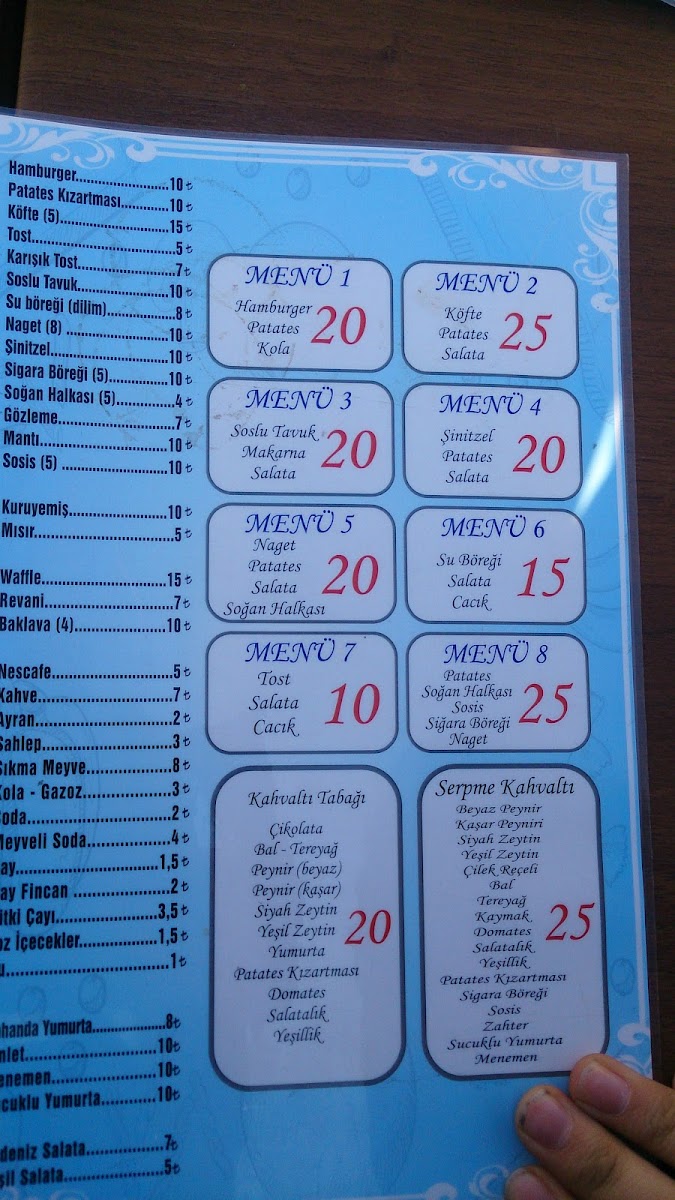 Hamburger..........................10 ₺
Patates Kızartması.............10 ₺
Köfte (5)..............................15 ₺
Tost.....................................5 ₺
Karışık Tost.........................7 ₺
Soslu Tavuk.........................10 ₺
Su böreği (dilim)..................8 ₺
Naget (8) ............................10 ₺
Şinitzel................................10 ₺
Sigara Böreği (5).................10 ₺
Soğan Halkası (5)................4 ₺
Gözleme..............................7 ₺
Mantı...................................10 ₺
Sosis (5) .............................10 ₺
Kuruyemiş...........................10 ₺
Mısır....................................5 ₺
Waffle..................................15 ₺
Revani.................................7 ₺
Baklava (4)..........................10 ₺
Nescafe...............................5 ₺
Kahve..................................7 ₺
Ayran...................................2 ₺
Sahlep.................................3 ₺
Sıkma Meyve.......................8 ₺
Kola - Gazoz........................3 ₺
oda......................................2 ₺
Meyveli Soda.......................4 ₺
ay........................................1,5 ₺
ay Fincan ............................2 ₺
itki Çayı...............................3,5 ₺
oz İçecekler.........................1,5 ₺
u..........................................1 ₺
ahanda Yumurta..................8 ₺
mlet.....................................10 ₺
enemen...............................10 ₺
ucuklu Yumurta...................10 ₺
deniz Salata........................7 ₺
şil Salata.............................5 ₺
MENÜ 1
Hamburger
Patates
Kola
20
MENÜ 2
Köfte
Patates
Salata
25
MENÜ 3
Soslu Tavuk
Makarna
Salata
20
MENÜ 4
Şinitzel
Patates
Salata
20
MENÜ 5
Naget
Patates
Salata
Soğan Halkası
20
MENÜ 6
Su Böreği
Salata
Cacık
15
MENÜ 7
Tost
Salata
Cacık
10
MENÜ 8
Patates
Soğan Halkası
Sosis
Siğara Böreği
Naget
25
Kahvaltı Tabağı
Çikolata
Bal - Tereyağ
Peynir (beyaz)
Peynir (kaşar)
Siyah Zeytin
Yeşil Zeytin
Yumurta
Patates Kızartması
Domates
Salatalık
Yeşillik
20
Serpme Kahvaltı
Beyaz Peynir
Kaşar Peyniri
Siyah Zeytin
Yeşil Zeytin
Çilek Reçeli
Bal
Tereyağ
Kaymak
Domates
Salatalık
Yeşillik
Patates Kızartması
Sigara Böreği
Sosis
Zahter
Sucuklu Yumurta
Menemen
25